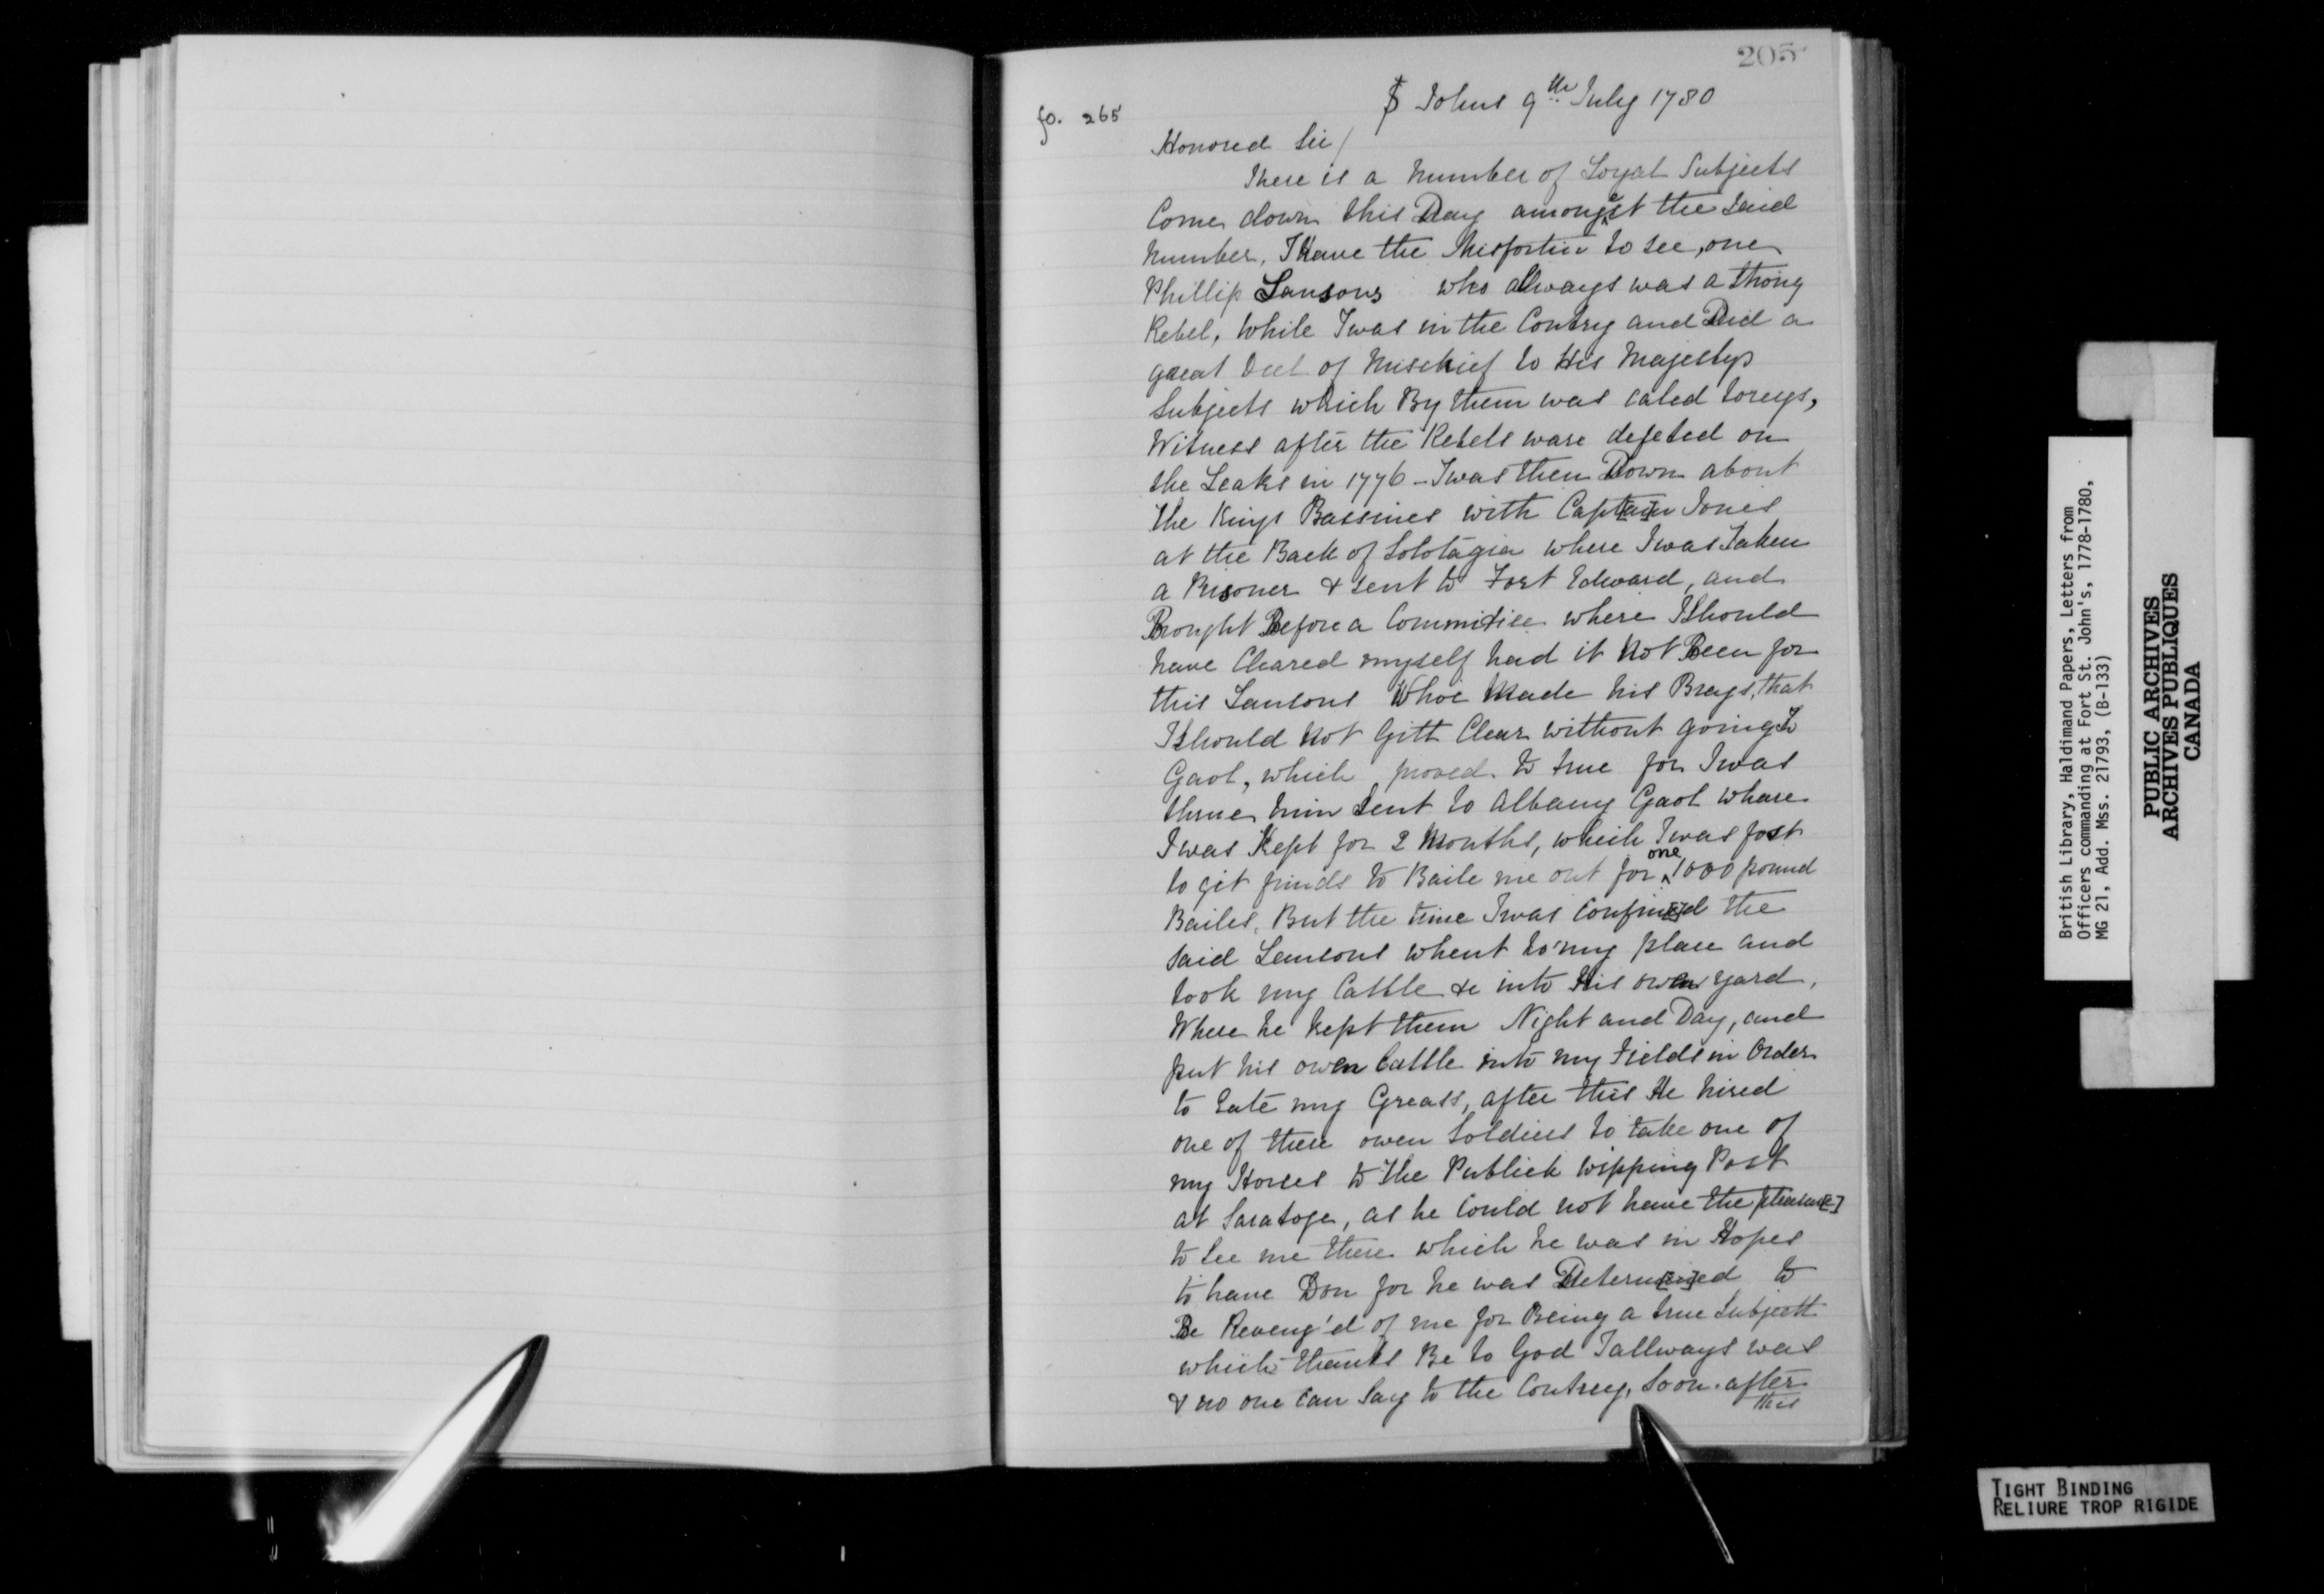 205
fo. 265
St Johns 9th July 1780
Honored Sir/
There is a Number of Loyal Subjects
Come down this Day amongest the Said
Number, I Have the Misfortin to see, one
Phillip Lansons who allways was a Strong
Rebel, While I was in the Contry and Did a
great Deel of Mischief to His Majestys
Subjects which By them was caled toreys,
Witness after the Rebels ware defeted on
the Leaks in 1776 - I was then Down about
the Kings Bassines with Capt[ai]n Jones
at the Back of where I was Taken
a Prisoner & sent to Fort Edward, and
Brought Before a Commitiee where I Should
have Cleared myself had it Not Been for
this Lansons Whoe Made his Brags, that
I Should Not Gitt Clear without going to
Gaol, which proved to true for I was
sent to Albany Gaol whare
I was Kept for 2 Months, which I was fost
to git frinds to Baile me out for one 1000 pound
Bailes, But the time I was Confin[e]d the
said Lansons whent to my place and
took my Cattle &c into His owen yard,
Where he kept them Night and Day, and
put his owen Cattle into my Fields in Order
to Eate my Greass, after this He hired
one of there owen Soldiers to take one of
my Horses to the Publick wipping Post
at Saratoge, as he Could not have the pleasur[e]
to See me there which he was in Hopes
to have Don for he was Determ[in]ed to
Be Reveng'd of me for Being a true Subjectt
which thanks Be to God I allways was
& no one can Say to the Contrey, Soon after
this
British Library, Haldimand Papers, Letters from
Officers commanding at Fort St. John's, 1778-1780,
MG 21, Add. Mss. 21793, (B-133)
PUBLIC ARCHIVES
ARCHIVES PUBLIQUES
CANADA
TIGHT BINDING
RELIURE TROP RIGIDE